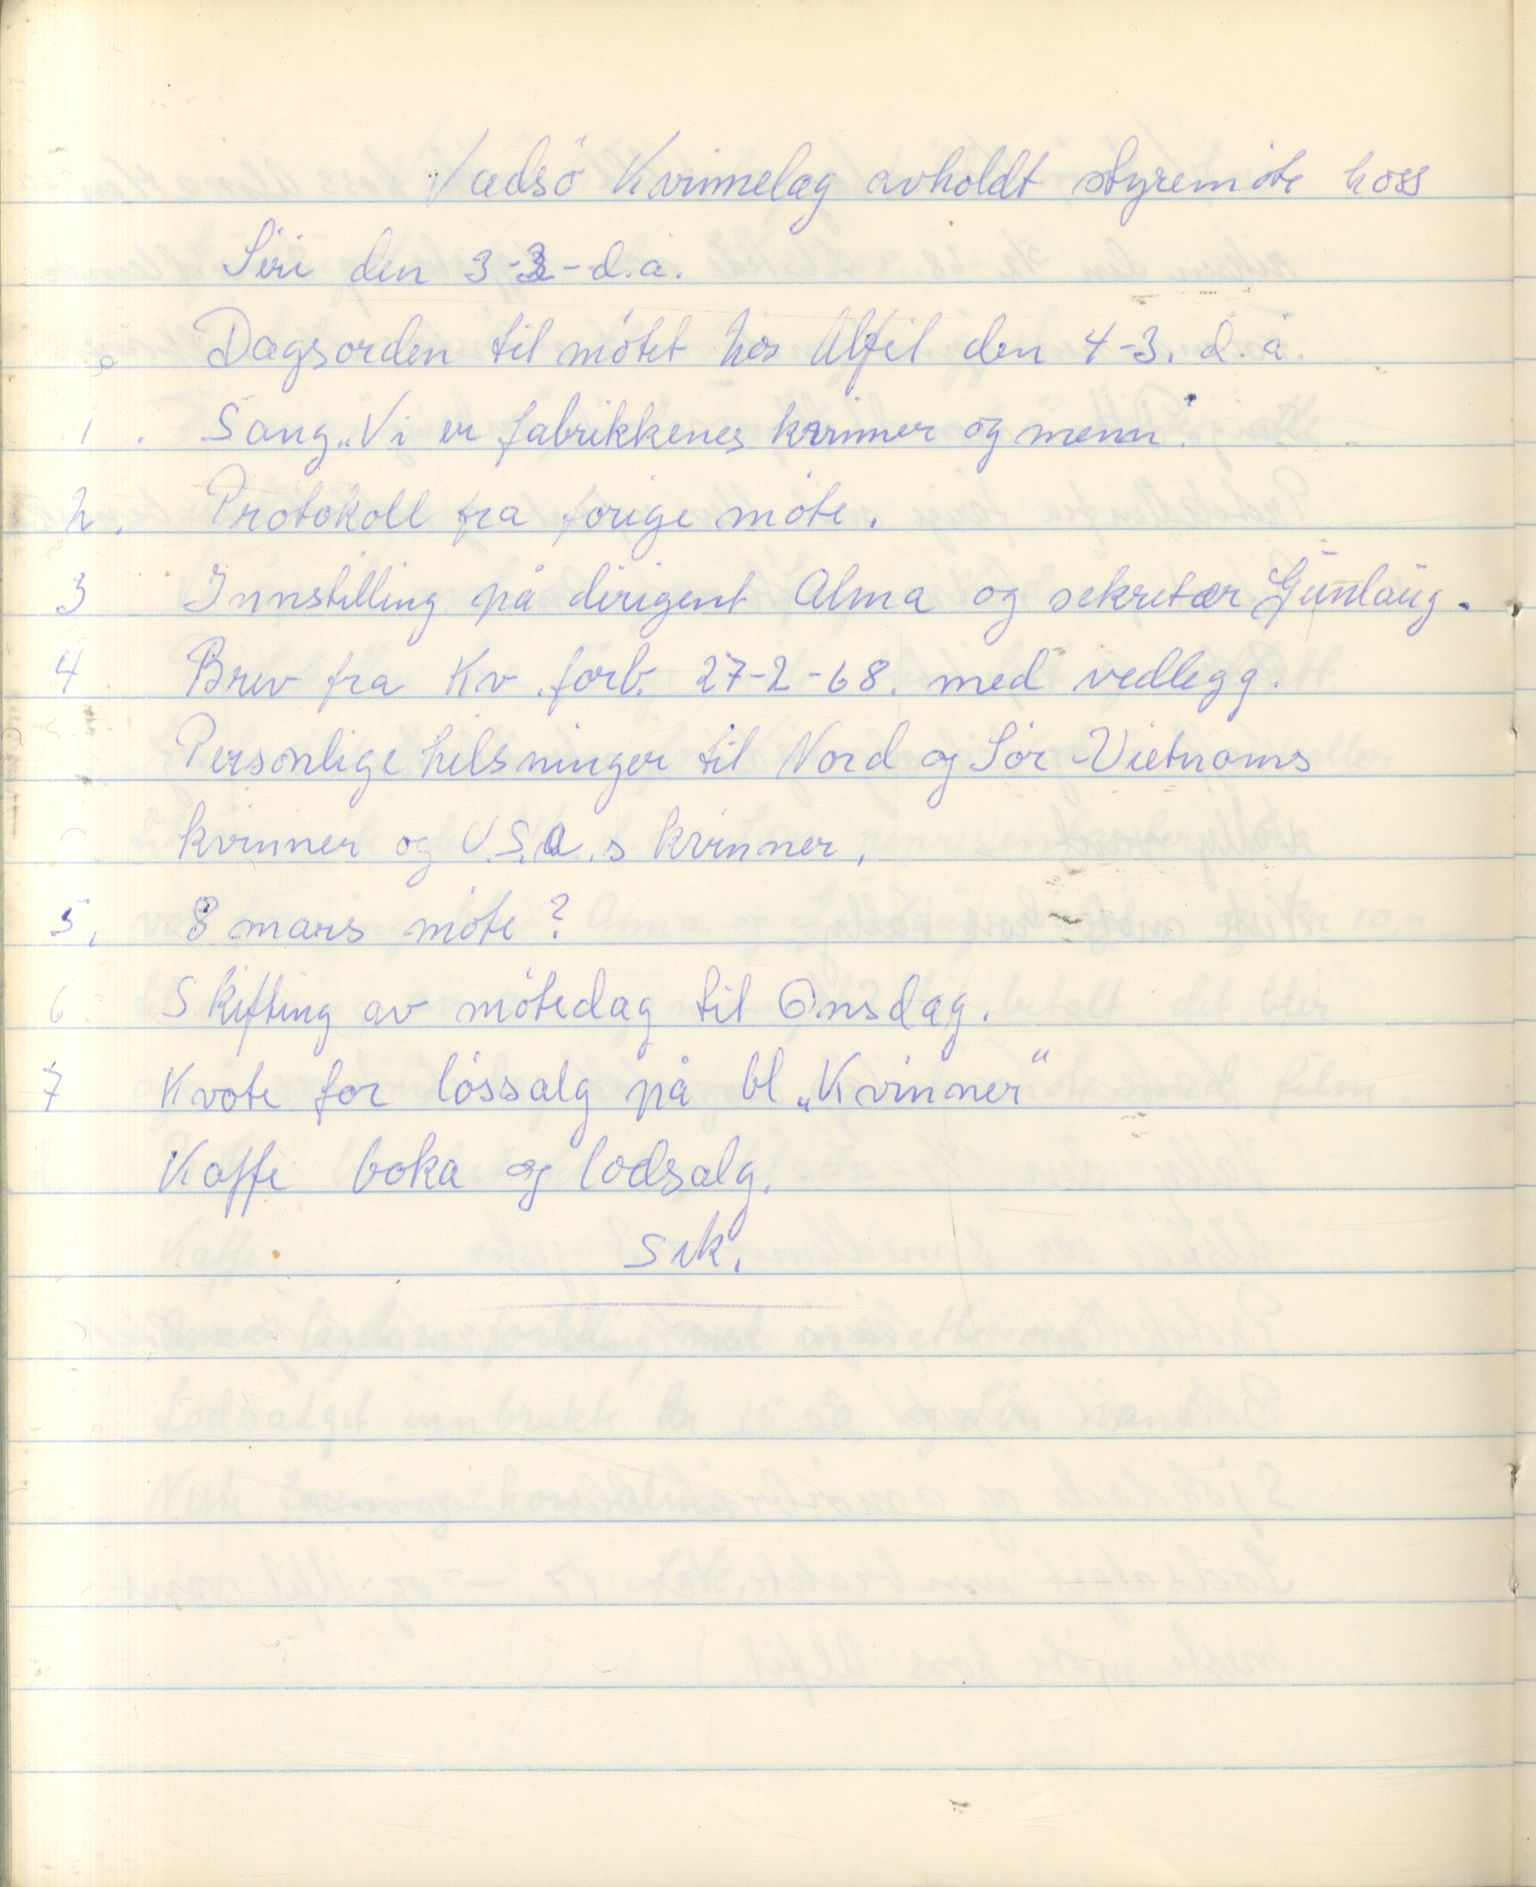 Vadsö Kvinnelag avholdt styremöte hoss
Siri den 3-3-d.å.
Dagsorden til mötet hos Alfil den 4-3. d.å.
1. Sang „Vi er fabrikkenes kvinner og menn".
2. Protokoll fra forige möte.
3 Innstilling på dirigent Alma og sekretær Gunlaug.
4 Brev fra Kv.forb. 27-2-68. med vedlegg.
Personlige hilsninger til Nord og Sör-Vietnams
kvinner og U.S.a.s kvinner.
5. 8 mars möte?
6. Skifting av mötedag til Onsdag.
7 Kvote for lössalg på bl „Kvinner"
Kaffe boka og lodsalg.
Sek.